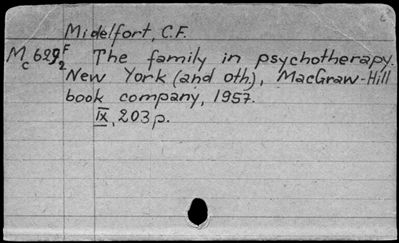 Midelfort, C.F.
The family in psychotherapy.
New York (and oth), MacGraw-Hill
book company, 1957.
IX, 203 p.